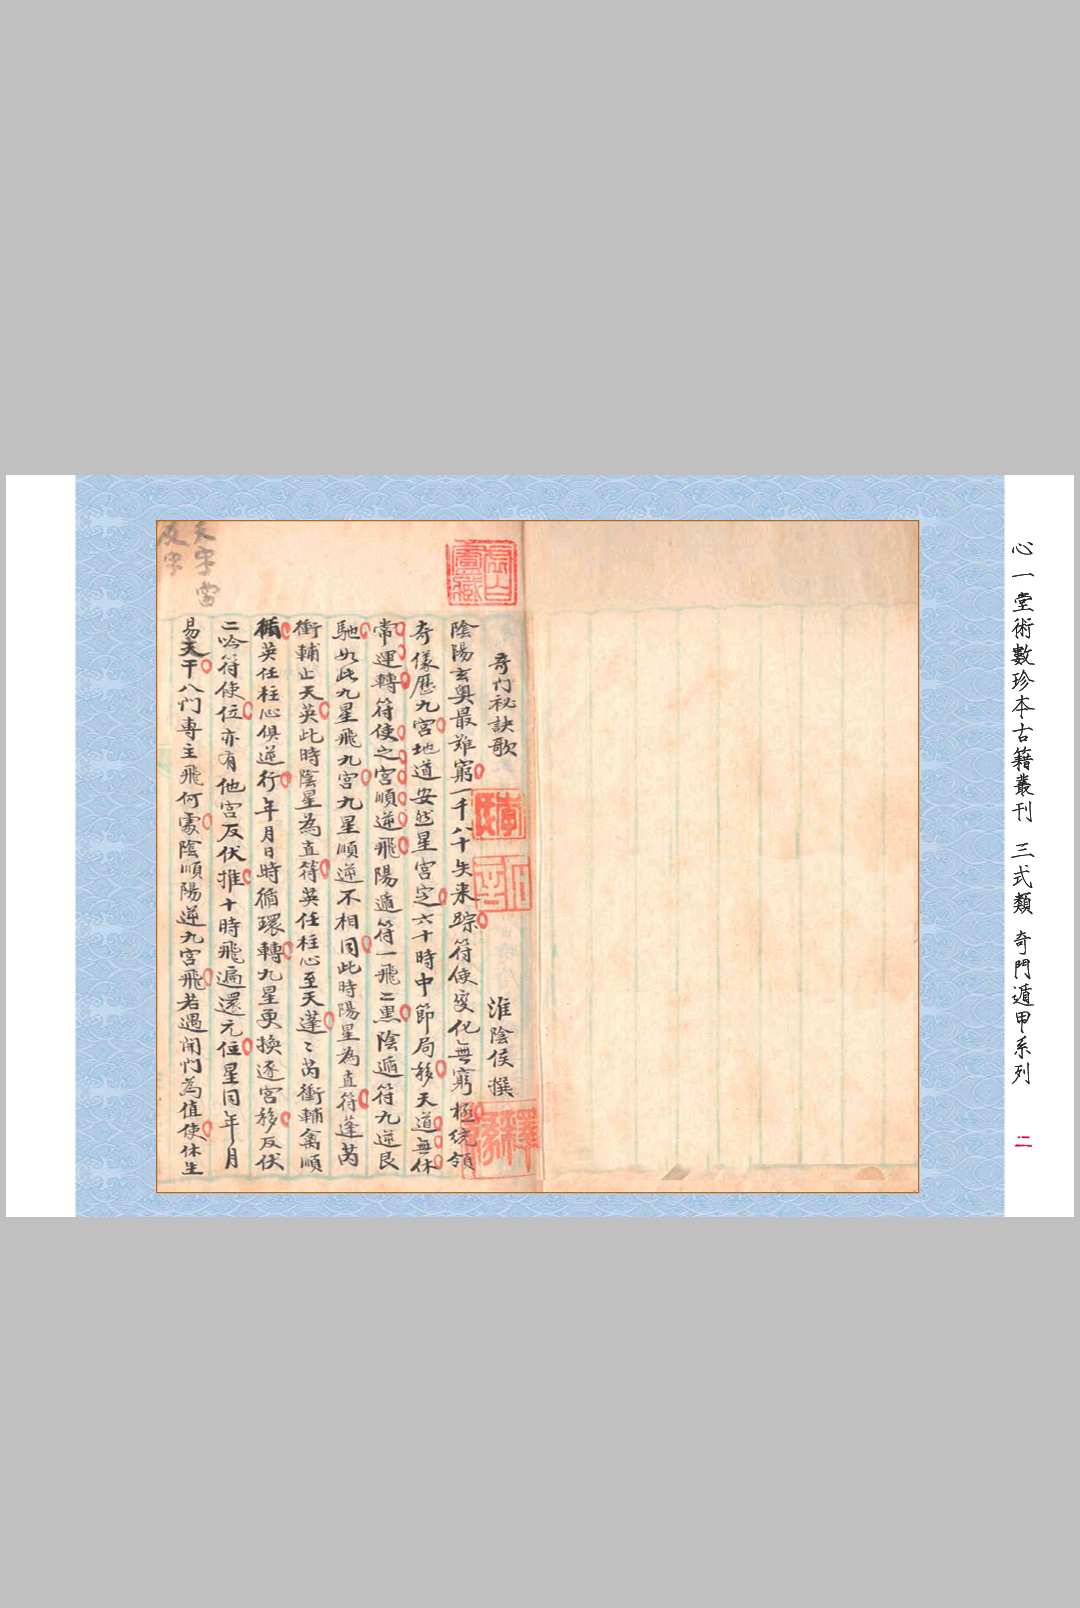 心一堂術數珍本古籍叢刊 三式類 奇門遁甲系列
二
奇门秘訣歌 淮陰侯 撰
陰陽玄奧最难窮一千八十矢来踪符使变化無窮極统領
奇儀歷九宮地道安然星宮定六十時中節局移天道無休
常運轉符使之宮順逆飛陽遁符一飛二黑陰遁符九逆艮
馳如此九星飛九宮九星順逆不相同此時陽星為直符蓬芮
衝輔止天英此時陰星為直符英任柱心至天蓬〻芮衝輔禽順
循英任柱心俱逆行年月日時循環轉九星更換逐宮移反伏
二吟符使位亦有他宮反伏推十時飛遍還元位星同年月
易天干八门專主飛何處陰順陽逆九宮飛若遇開門為值使休生